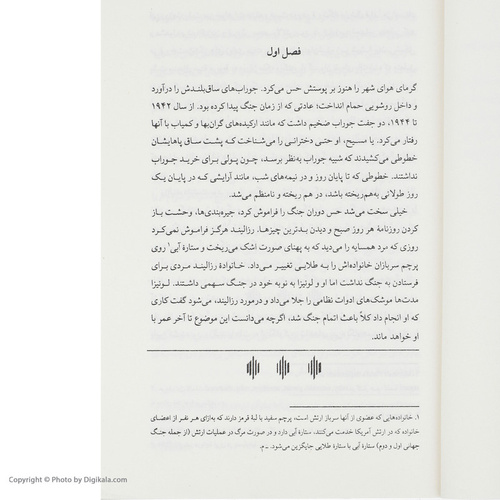 فصل اول
گرمای هوای شهر را هنوز بر پوستش حس می‌کرد. جوراب‌های ساق‌بلندش را درآورد
و داخل روشویی حمام انداخت؛ عادتی که از زمان جنگ پیدا کرده بود. از سال ۱۹۴۲
تا ۱۹۴۴، دو جفت جوراب ضخیم داشت که مانند ارکیده‌های گران‌بها و کمیاب با آنها
رفتار می‌کرد. یا مسیح، او حتی دخترانی را می‌شناخت که پشت ساق پاهایشان
خطوطی می‌کشیدند که شبیه جوراب به‌نظر برسد، چون پولی برای خرید جوراب
نداشتند. خطوطی که تا پایان روز و در نیمه‌های شب، مانند آرایشی که در پایان یک
روز طولانی به‌هم‌ریخته باشد، در هم ریخته و نامنظم می‌شد.
خیلی سخت می‌شد حس دوران جنگ را فراموش کرد، جیره‌بندی‌ها، وحشت باز
کردن روزنامهٔ هر روز صبح و دیدن بدترین چیزها. رزالیند هرگز فراموش نمی‌کرد
روزی که مرد همسایه را می‌دید که به پهنای صورت اشک می‌ریخت و ستارهٔ آبی۱ روی
پرچم سربازان خانواده‌اش را به طلایی تغییر می‌داد. خانوادهٔ رزالیند مردی برای
فرستادن به جنگ نداشت اما او و لوئیزا به نوبه خود در جنگ سهمی داشتند. لوئیزا
مدت‌ها موشک‌های ادوات نظامی را جلا می‌داد و درمورد رزالیند، می‌شود گفت کاری
که او انجام داد کلاً باعث اتمام جنگ شد، اگرچه می‌دانست این موضوع تا آخر عمر با
او خواهد ماند.
۱. خانواده‌هایی که عضوی از آنها سرباز ارتش است، پرچم سفید با لبهٔ قرمز دارند که به‌ازای هر نفر از اعضای
خانواده که در ارتش آمریکا خدمت می‌کنند، ستارهٔ آبی دارد و در صورت مرگ در عملیات ارتش (از جمله جنگ
جهانی اول و دوم) ستارهٔ آبی با ستارهٔ طلایی جایگزین می‌شود. ـ م.
Copyright © Photo by Digikala.com